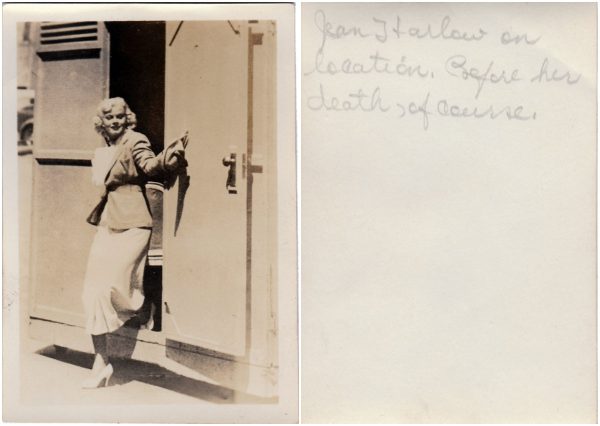 Jean Harlow on
location. Before her
death, of course.